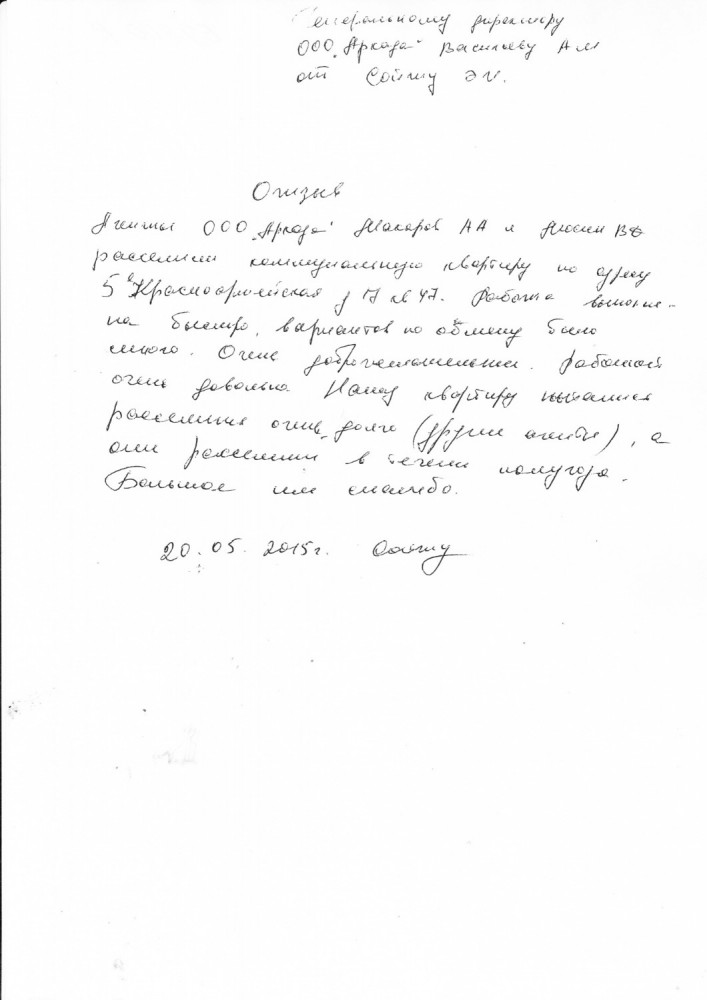 Генеральному директору
ООО "Аркада" Васильеву А М
от
Отзыв
Агенты ООО "Аркада" Макаров АА и
расселили коммунальную квартиру по адресу
5 Красноармейская д 17 кв 47. Работа выполне-
на быстро, вариантов по обмену было
много. Очень доброжелательны. Работой
очень довольна. Нашу квартиру пытались
расселить очень долго (другие агенты), а
они расселили в течени полугода.
Большое им спасибо.
20.05.2015г.